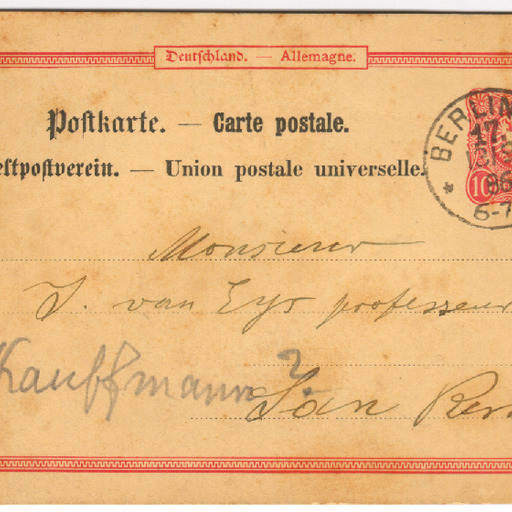 Deutschland. — Allemagne.
Postkarte. — Carte postale.
eltpostverein. — Union postale universelle.
BERLIN
17
96
6-7
10
Monsieur
J. van Eys professeur
Kauffmann ?
San Rem